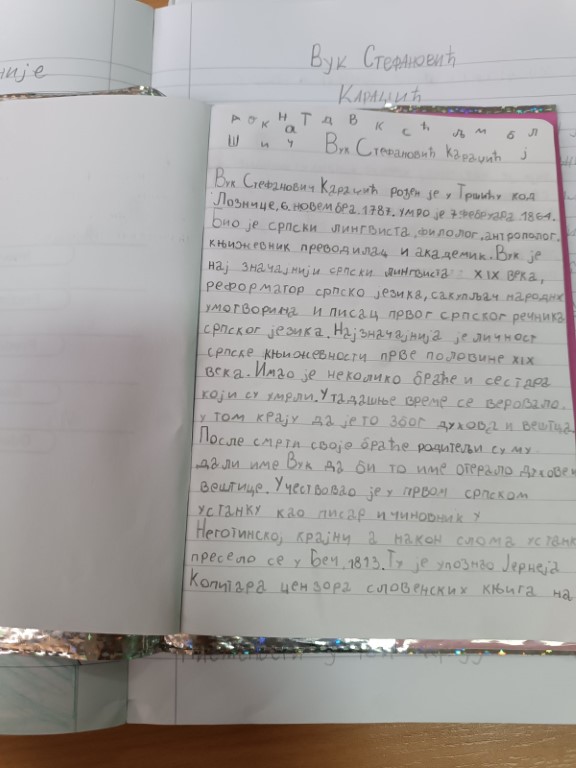 није
Вук Стефановић
Караџић
А О К Н Т Д В К С Ћ Љ М Б Л
а
Ш И Ч Вук Стефановић Караџић Ј
Вук Стефановић Караџић рођен је у Тршићу код
Лознице, 6. новембра. 1787. умро је 7 фебруара 1864.
Био је српски лингвиста, филолог, антрополог,
књижевник преводилац и академик. Вук је
нај значајнији српски лингвиста XIX века,
реформатор српско језика, сакупљач народне
умотворина и писац првог српског речника
српског језика. Најзначајнија је личност
српске књижевности прве половине XIX
века. Имао је неколико браће и сестара
који су умрли. У тадашње време се веровало
у том крају да је то због духова и вештица
После смрти своје браће родитељи су му
дали име Вук да би то име отерало духове и
вештице. Учествовао је у првом српском
устанку као писар и чиновник у
Неготинској крајни а након слома устанк
пресело се у Беч. 1813. Ту је упознао Јернеја
Копитара цензора словенских књига на